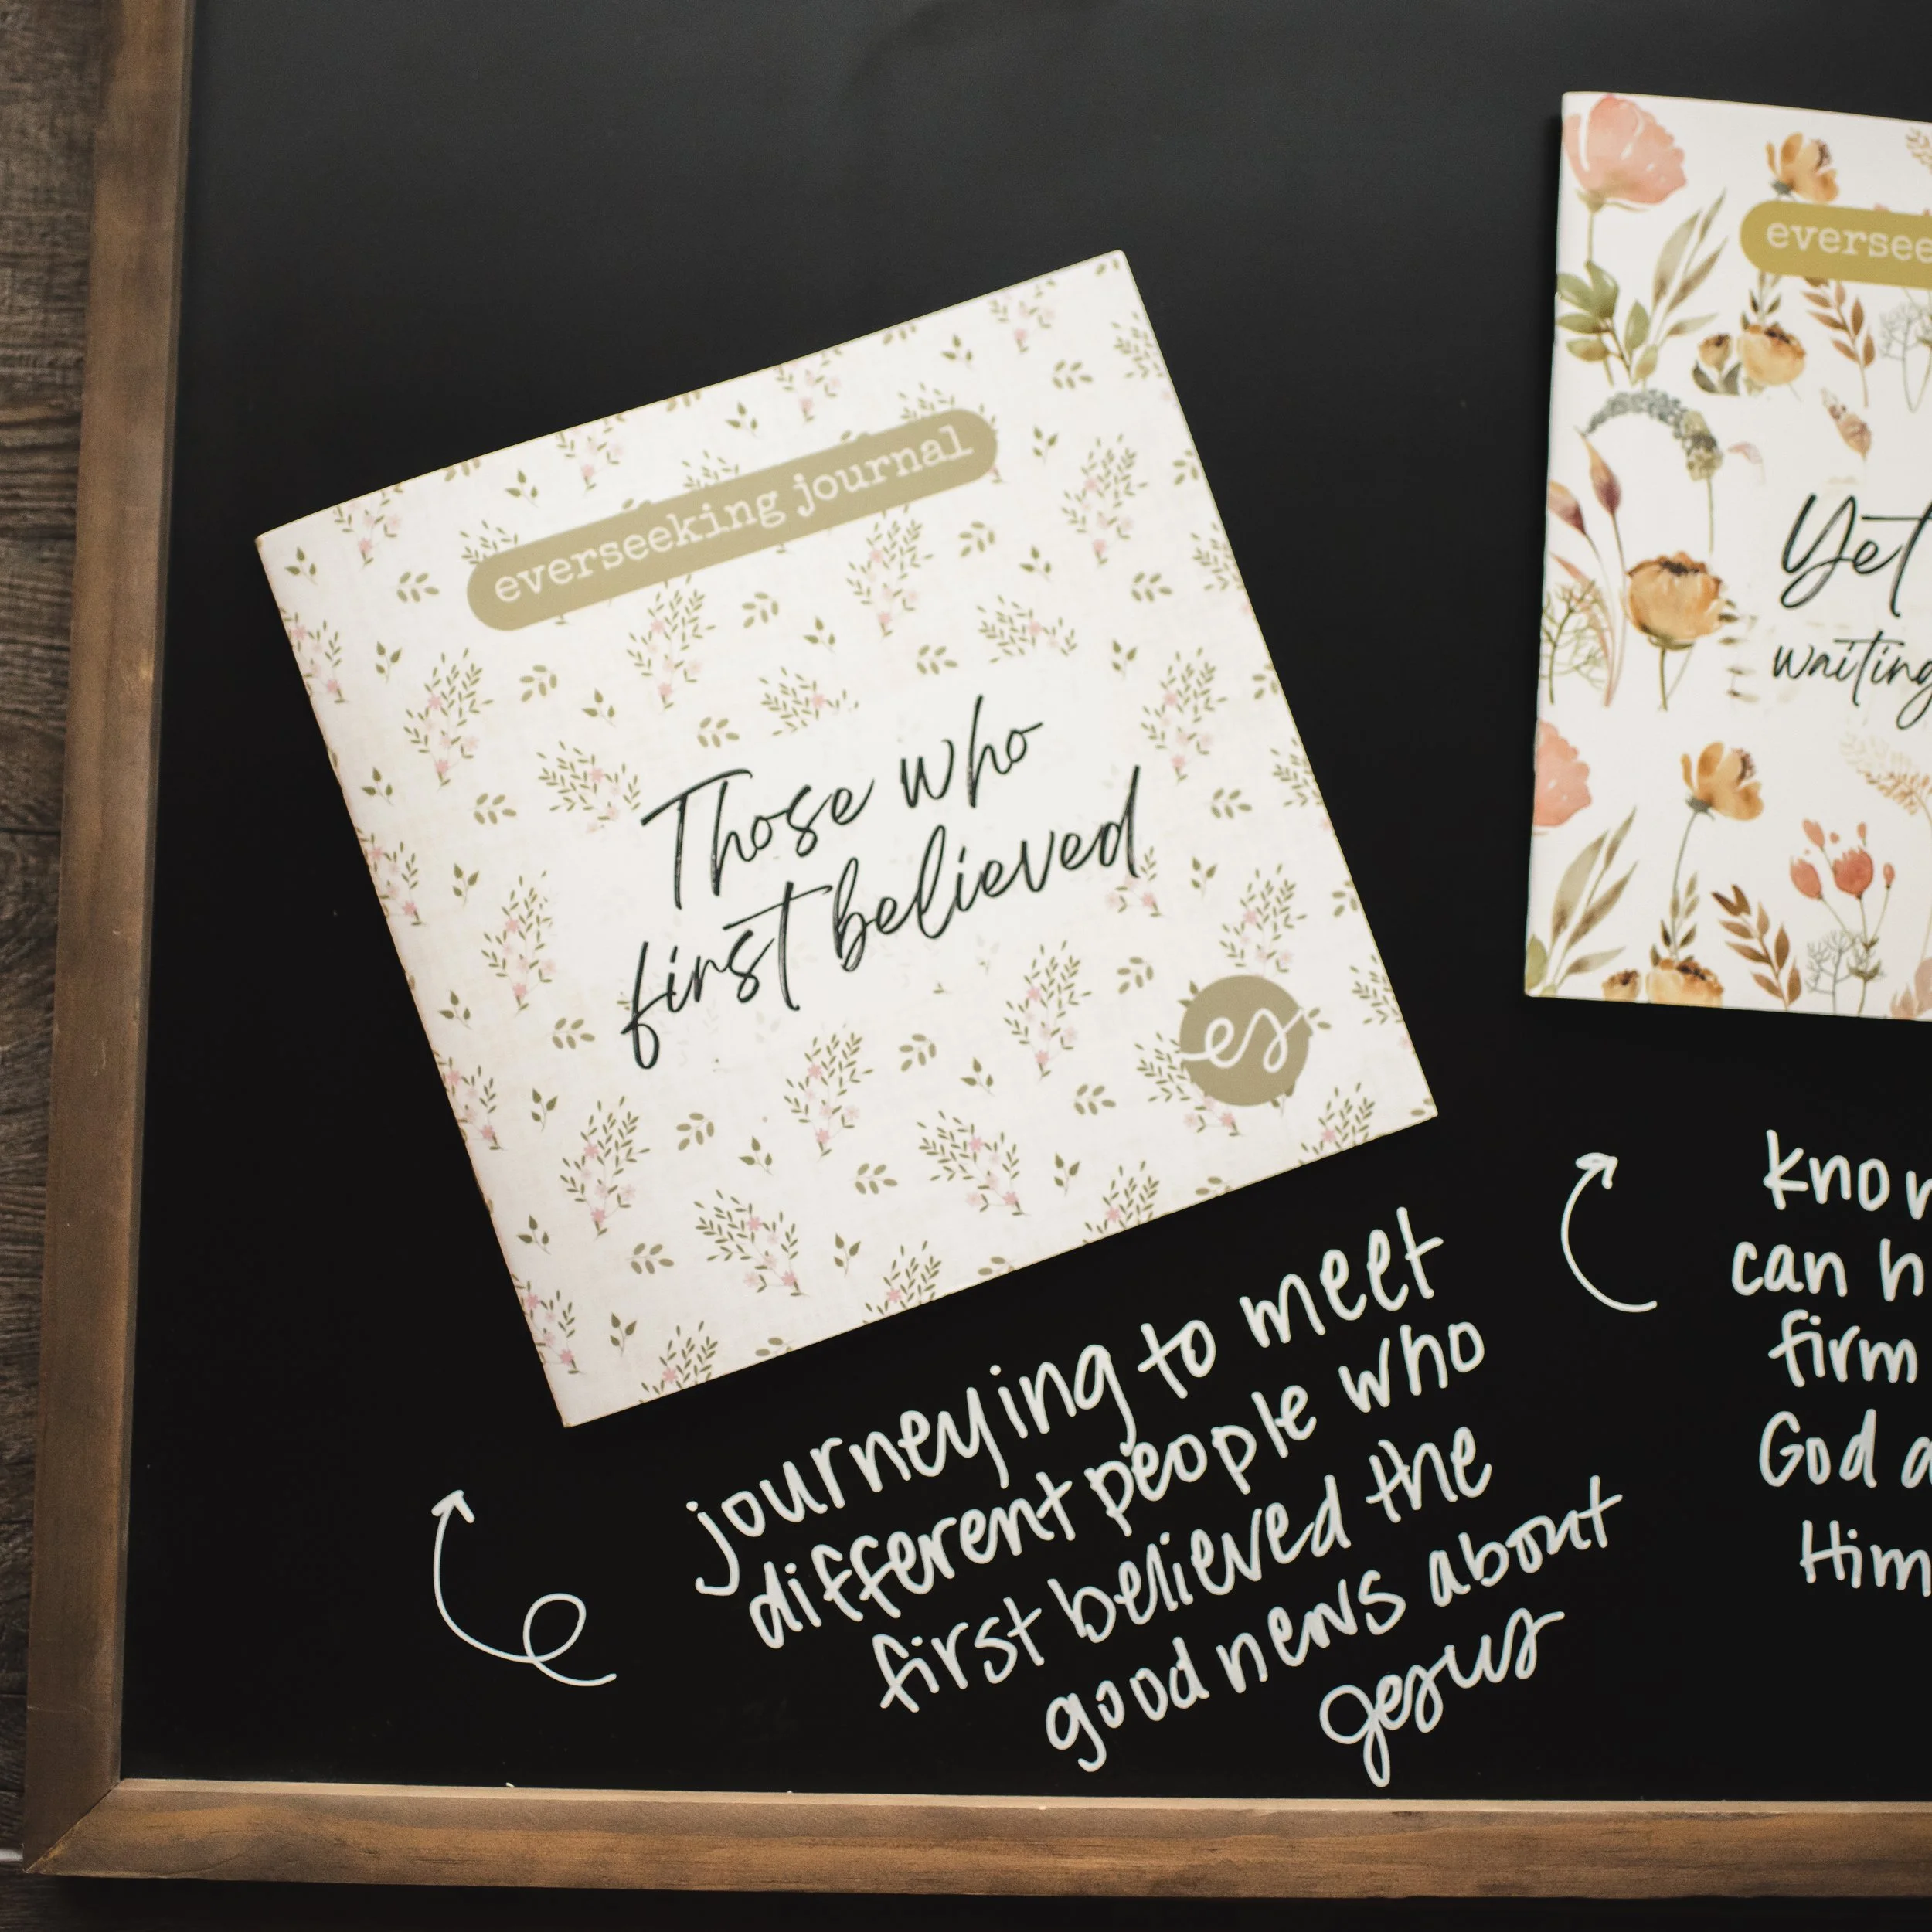 everseeking journal
Those who
first believed
es
journeying to meet
different people who
first believed the
good news about
Jesus
Yet
waiting
can
firm
God
Him